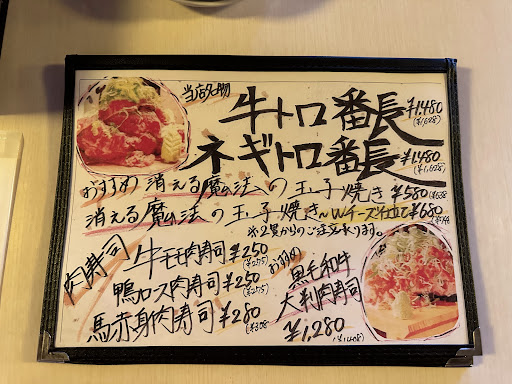 当店名物
牛トロ番長 ¥1,480
(¥1,628)
ネギトロ番長 ¥1,480
(¥1,628)
おすすめ 消える魔法の玉子焼き ¥580
(¥638
消える魔法の玉子焼き〜Wチーズ仕立て ¥680
※2貫からのご注文承ります。
肉寿司
牛モモ肉寿司 ¥250
(¥275)
鴨ロース肉寿司 ¥250
(¥275)
馬赤身肉寿司 ¥280
(¥308
おすすめ
黒毛和牛
大判肉寿司
¥1,280
(¥1,408)